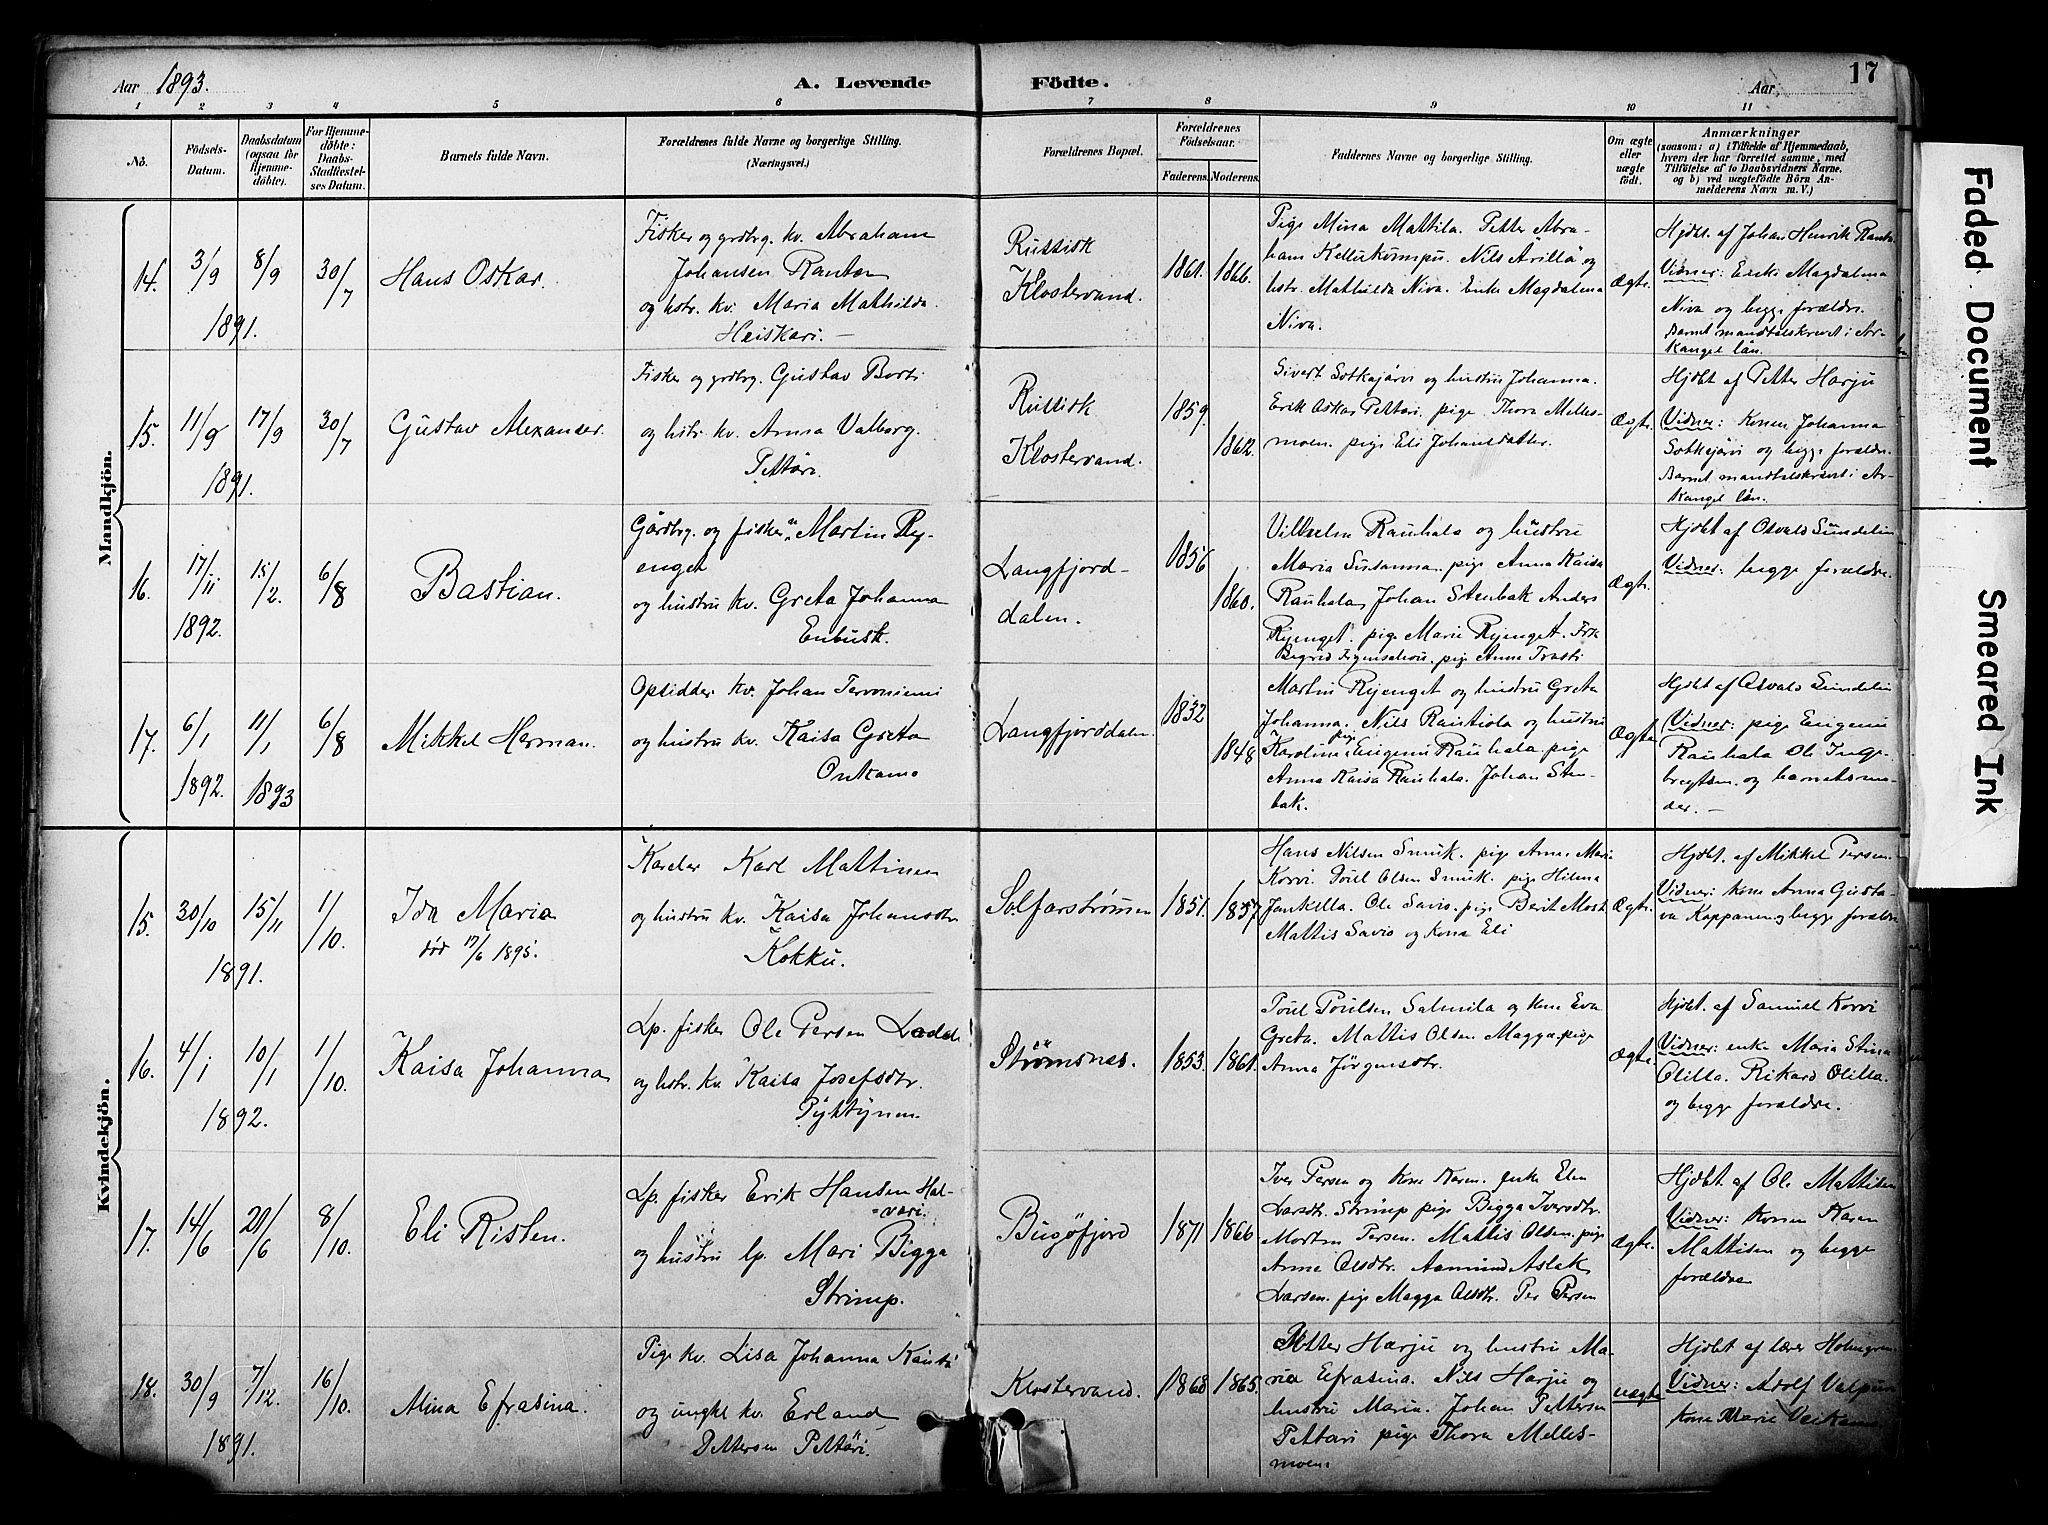 17
Aar 1893.
A. Levende Födte.
Aar
1 2 3 4 5 6 7 8 9 10 11
No.
Födsels-
Datum.
Daabsdatum
(ogsaa for
Hjemme-
döbte).
For Hjemme-
döbte:
Daabs-
Stadfæstel-
ses Datum.
Barnets fulde Navn.
Forældrenes fulde Navne og borgerlige Stilling.
(Næringsvei.)
Forældrenes Bopæl.
Forældrenes
Födselsaar.
Faderens. Moderens.
Faddernes Navne og borgerlige Stilling.
Om ægte
eller
uægte
födt.
Anmærkninger
(saasom: a) i Tilfælde af Hjemmedaab,
hvem der har forrettet samme, med
Tilföielse af to Daabsvidners Navne.
og b) ved uægtefödte Börn An-
melderens Navn m. V.)
Mandkjön.
14.
3/9
1891.
8/9
30/7
Hans Oskar.
Fisker og grdbrg. kv. Abraham
Johansen Rantan
og hstr. kv. Maria Mathilda
Heiskari. —
Russisk
Klostervand.
1861.
1866.
Pige Mina Mattila. Petter Abra-
ham Kellukumpu. Nils Arilla og
hstr. Mathilda Niva. Enke Magdalena
Niva.
Ægte.
Hjdbt. af Johan Henrik
Vidner: Enke Magdalena
Niva og begge forældre.
Barnet mandtalskrevet i Ar-
kangel län.
15.
11/9
1891.
17/9
30/7
Gustav Alexander.
Fisker og grdbrg. Gustav
og hstr. kv. Anna Valborg.
Pettäri.
Russisk
Klostervand.
1859.
1862.
Sivert Sotkajärvi og hustru Johanna.
Erik Oskar Pettäri. pige Thora Melles-
moen. pige Eli Johansdatter.
Ægte.
Hjdbt af Petter Harju
Vidner: Konen Johanna
Sotkajärvi og begge forældre.
Barnet mandtalskrevet i Ar-
kangel län.
16.
17/11
1892.
15/2.
6/8
Bastian.
Gårdbrg. og fisker Martin Rej-
enget
og hustru kv. Greta Johanna
Enbusk.
Langfjord-
dalen.
1856
1860.
Vilhelm Rauhala og hustru
Maria Susanna. pige Anna Kaisa
Rauhala, Johan Stenbak Anders
Rejenget. pige Marie Rejenget.
pige Anna Trasti
Ægte.
Hjdbt af Osvald Sundelin
Vidner: begge forældre.
17.
6/1
1892.
11/1
1893
6/8
Mikkel Herman.
Opsidder kv. Johan Tervoniemi
og hustru kv. Kaisa Greta
Onkamo
Langfjorddalen.
1832
1848
Martin Rejenget og hustru Greta
Johanna. Nils Rautiola og hustru
Karolina pige Eugenie Rauhala. pige
Anna Kaisa Rauhala. Johan Sten-
bak.
Ægte
Hjdbt af Osvald Sundelin
Vidner: pige Eugenie
Rauhala Ole Inge-
brigtsen. og barnets mo-
der. —
Kvindekjön.
15.
30/10
1891.
15/11
1/10.
Ida Maria
død 17/6 1895.
Karl Mattinen
og hustru kv. Kaisa Johansdtr
Kokku.
Solfarstrømmen
1851.
1857.
Hans Nilsen Smuk. pige Anne Maria
Korvi. Poul Olsen Smuk. pige Hilma
Jankilla. Ole Savio. pige Berit
Mattis Savio og Kona Eli
Ægte.
Hjdbt. af Mikkel Persen.
Vidner: kone Anna Gusta-
va Kappanen og begge forældre
16.
4/1
1892.
10/1
1/10.
Kaisa Johanna
Lp. fisker Ole Persen
og hstr. kv. Kaisa Josefsdtr.
Pyhtynen.
Strømsnes.
1853.
1861.
Poul Poulsen Salmila og Kone Eva
Greta. Mattis Olsen Magga. pige
Anna Jörgensdtr.
Ægte
Hjdbt. af Samuel Korvi
Vidner: enke Maria Stina
Olilla. Rikard Olilla.
og begge forældre.
17.
14/6
20/6
8/10.
Eli Risten.
Lp. fisker Erik Hansen Hal-
vari.
og hustru lp. Mari Bigga
Strimp.
Bugöfjord
1871
1866
Iver Persen og Kone Karen. Enke Elen
Larsdtr. Strimp pige Bigga Iversdtr.
Morten Persen. Mattis Olsen. pige
Anne Olsdtr. Aamund Aslak
Larsen. pige Magga Olsdtr. Per Persen
Ægte.
Hjdbt. af Ole Mattisen
Vidner: Konen Karen
Mattisen og begge
forældre
18.
30/9
1891.
7/12.
16/10.
Alina Efrasina.
Pige kv. Lisa Johanna
og ungkl kv. Erland
Pettersen Pettäri.
Klostervand.
1868
1865.
Petter Harju og hustru Ma-
ria Efrasina. Nils Harju og
hustru Maria. Johan Pettersen
Pettäri pige Thora Melles-
moen.
uægte
Hjdbt af lærer Holmgren
Vidner: Adolf
Kone Marie
Faded Document
Smeared Ink